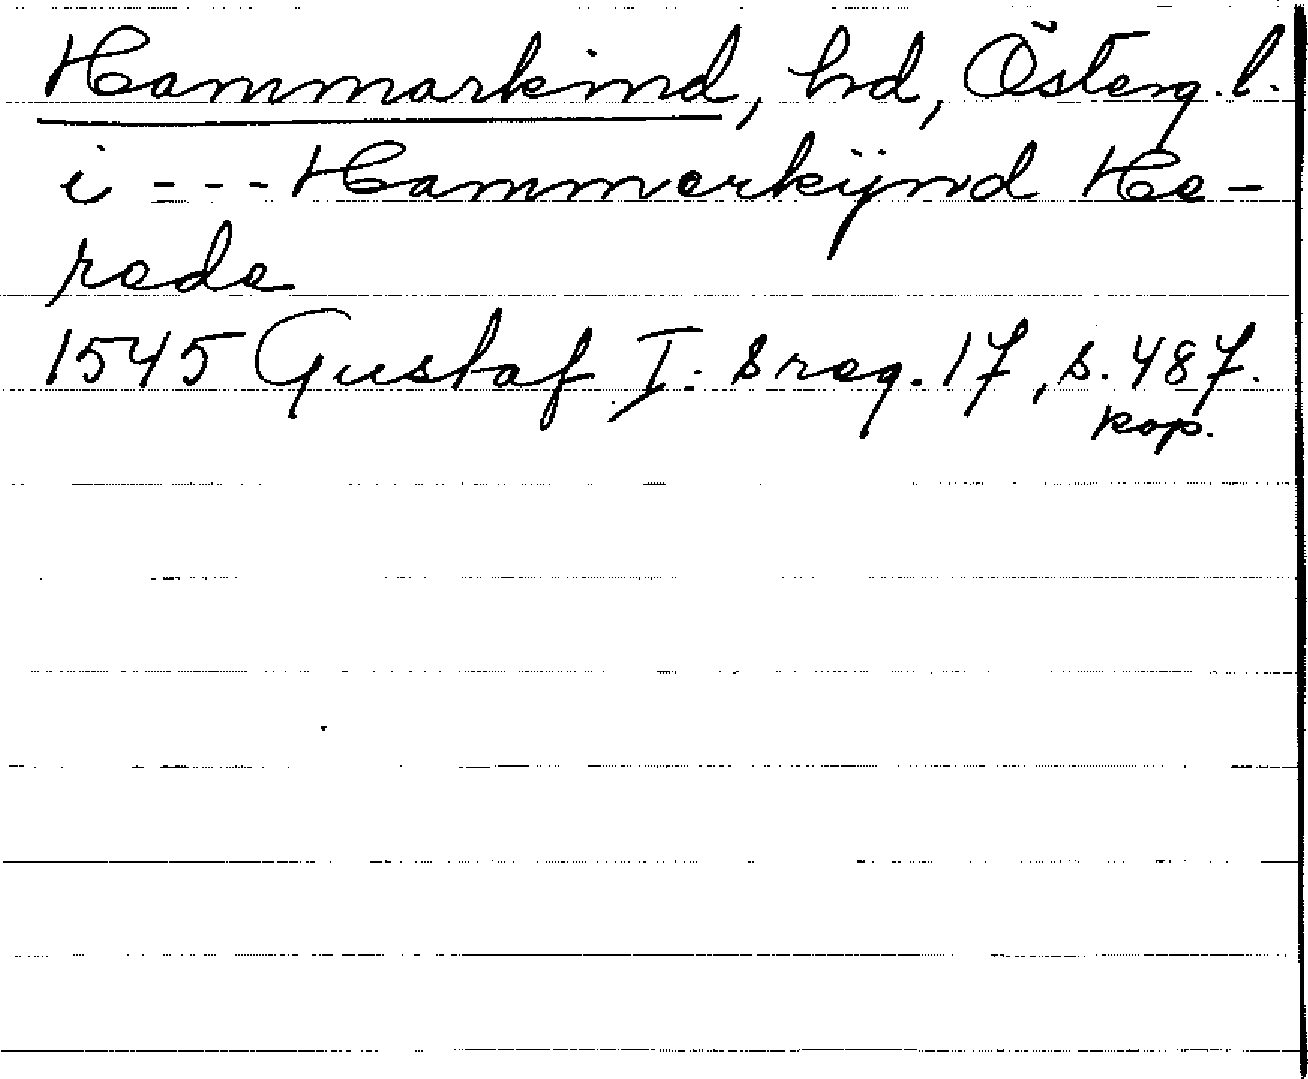 Hammarkind, hd, Österg. l.
i - - - Hammerkÿnd He-
rede
1545 Gustaf I:s reg. 17, s. 487.
kop.